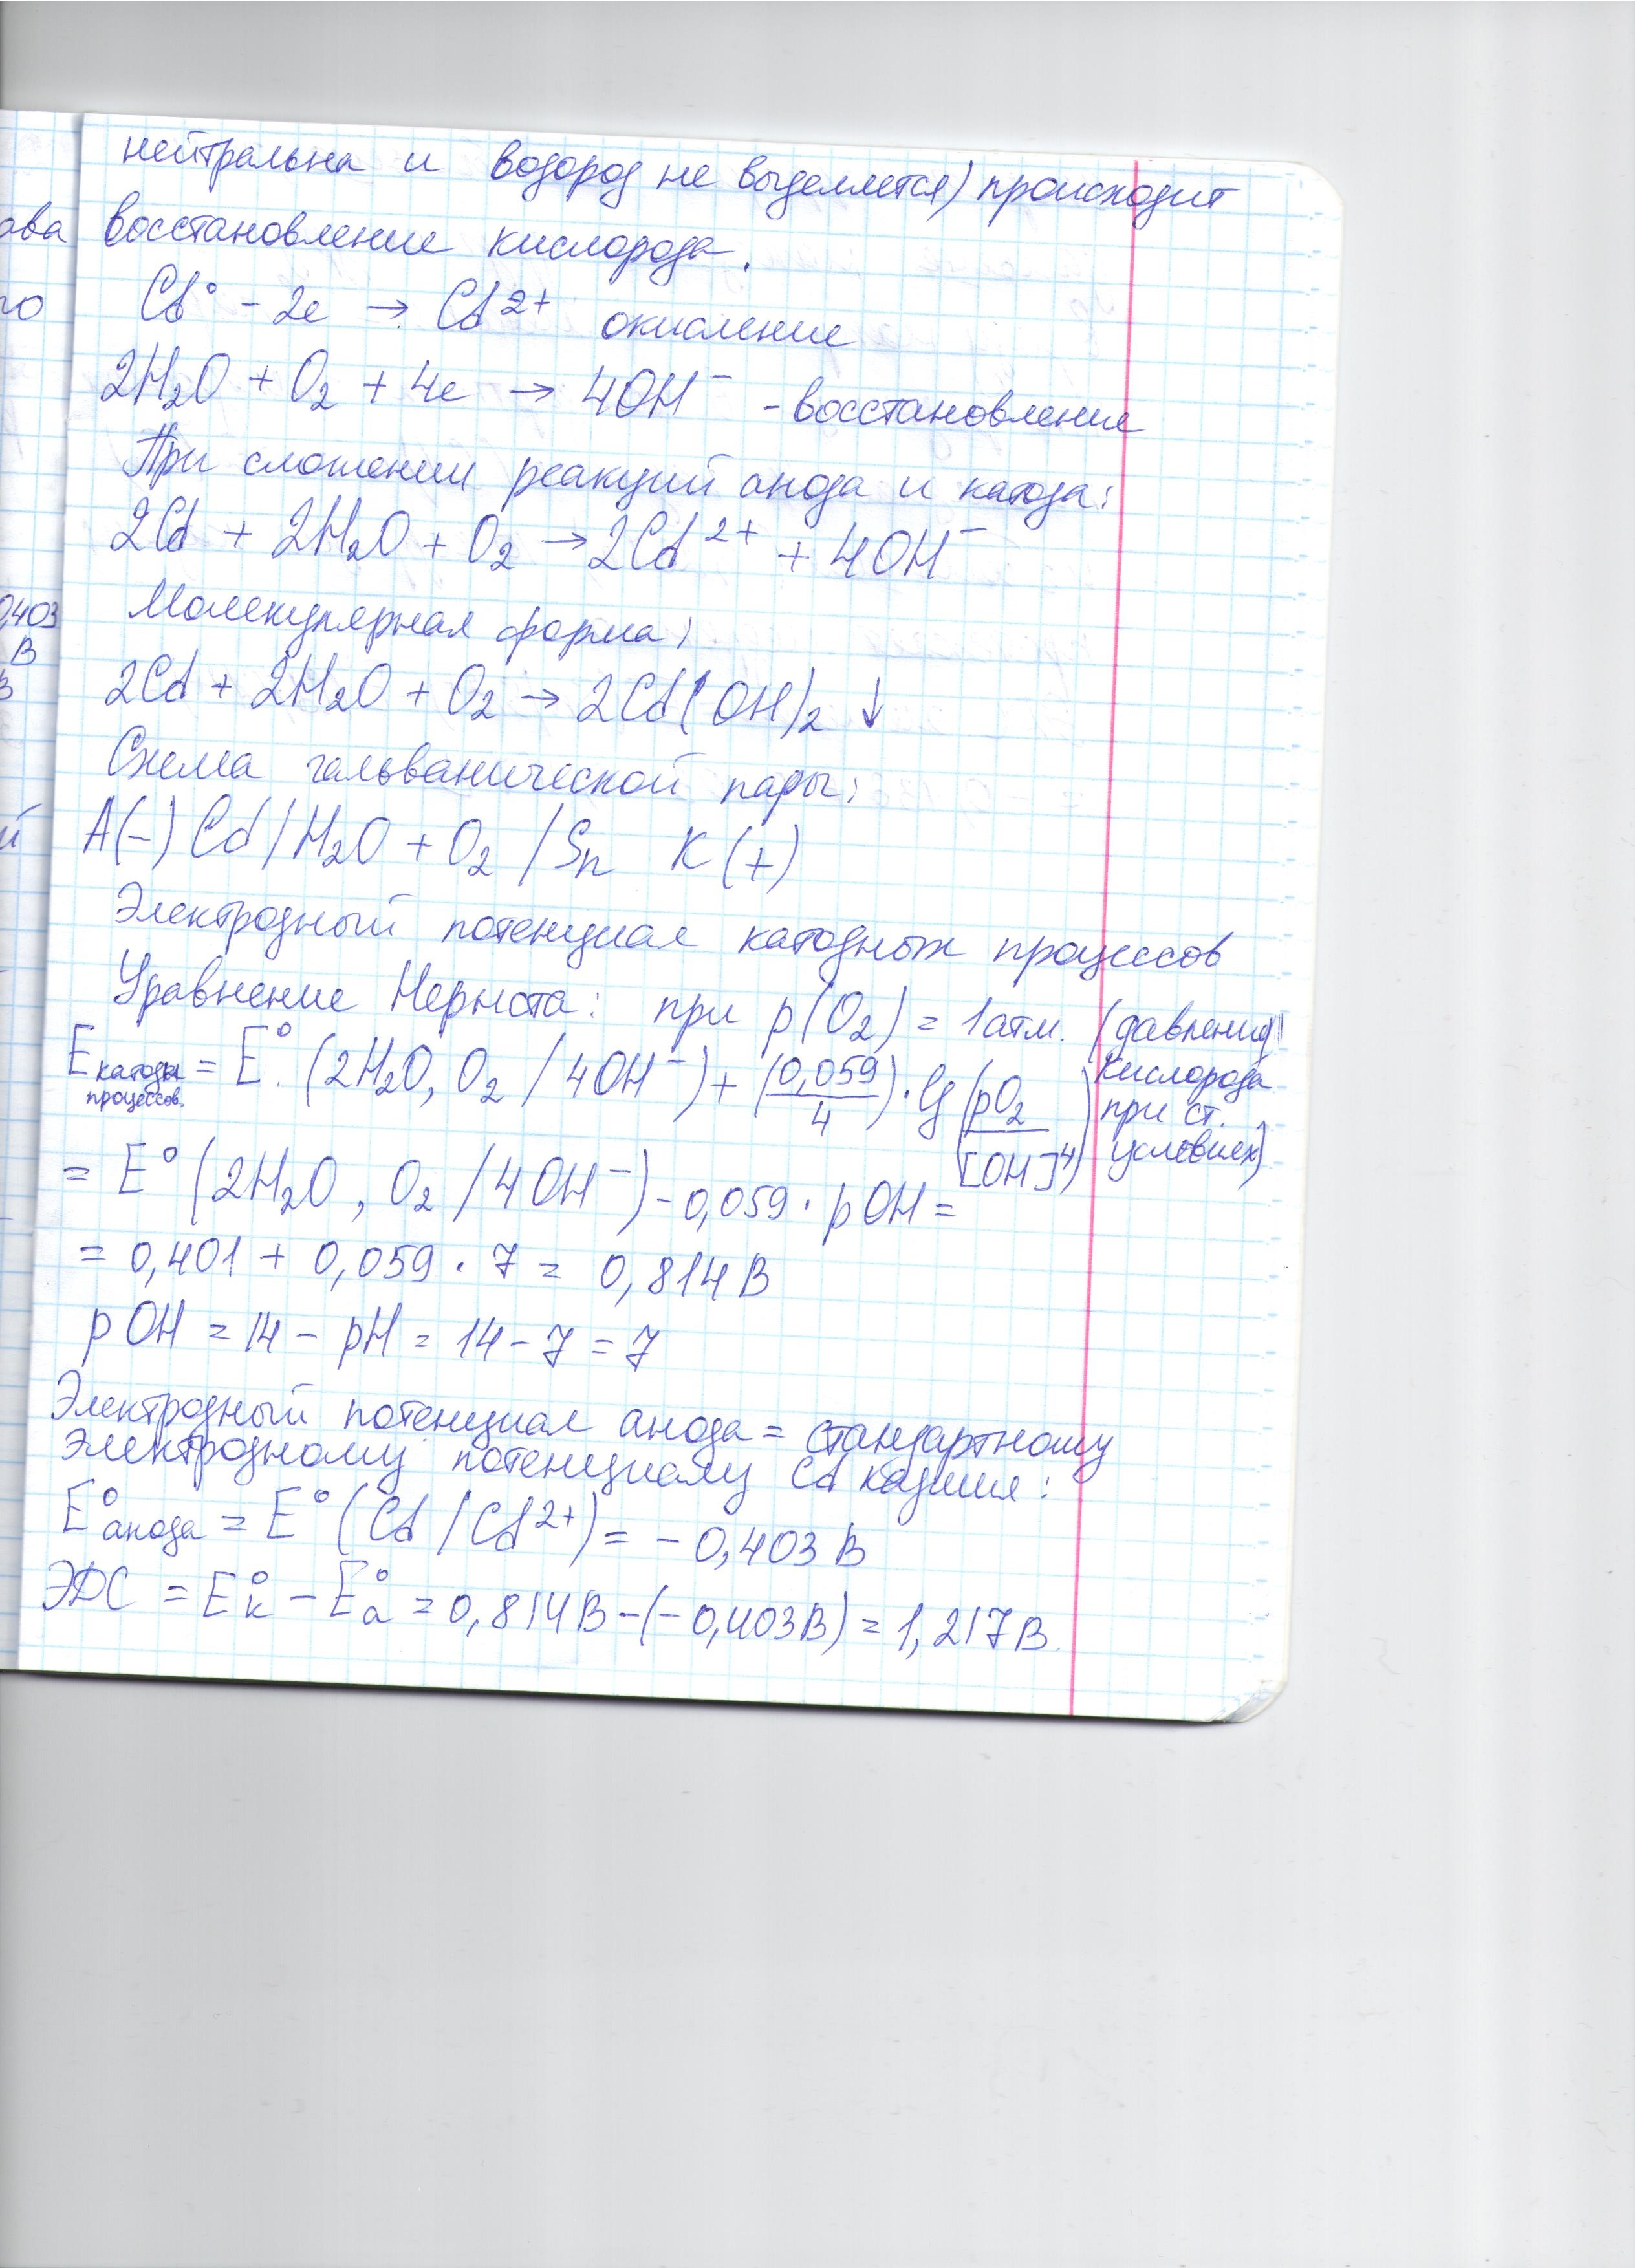 нейтральна и водород не выделяется) происходит
ова
восстановление кислорода.
го
Cd° - 2e → Cd²⁺ окисление
2H₂O + O₂ + 4e → 4OH⁻ - восстановление
При сложении реакций анода и катода:
2Cd + 2H₂O + O₂ → 2Cd²⁺ + 4OH⁻
0,403
В
Молекулярная форма:
2Cd + 2H₂O + O₂ → 2Cd(OH)₂ ↓
Схема гальванической пары:
й
A(-) Cd / H₂O + O₂ / Sn K (+)
Электродный потенциал катодных процессов
Уравнение Нернста: при p(O₂) = 1 атм. (давления
кислорода
при ст.
условиях)
E катодн процессов. = E°. (2H₂O, O₂ / 4OH⁻) + (0,059/4) · lg (pO₂/[OH]⁴)
= E° (2H₂O, O₂ / 4OH⁻) - 0,059 · pOH =
= 0,401 + 0,059 · 7 = 0,814 В
pOH = 14 - pH = 14 - 7 = 7
Электродный потенциал анода = стандартному
электродному потенциалу Cd кадмия:
E° анода = E° (Cd / Cd²⁺) = - 0,403 В
ЭДС = E°к - E°а = 0,814 В - (- 0,403 В) = 1,217 В.